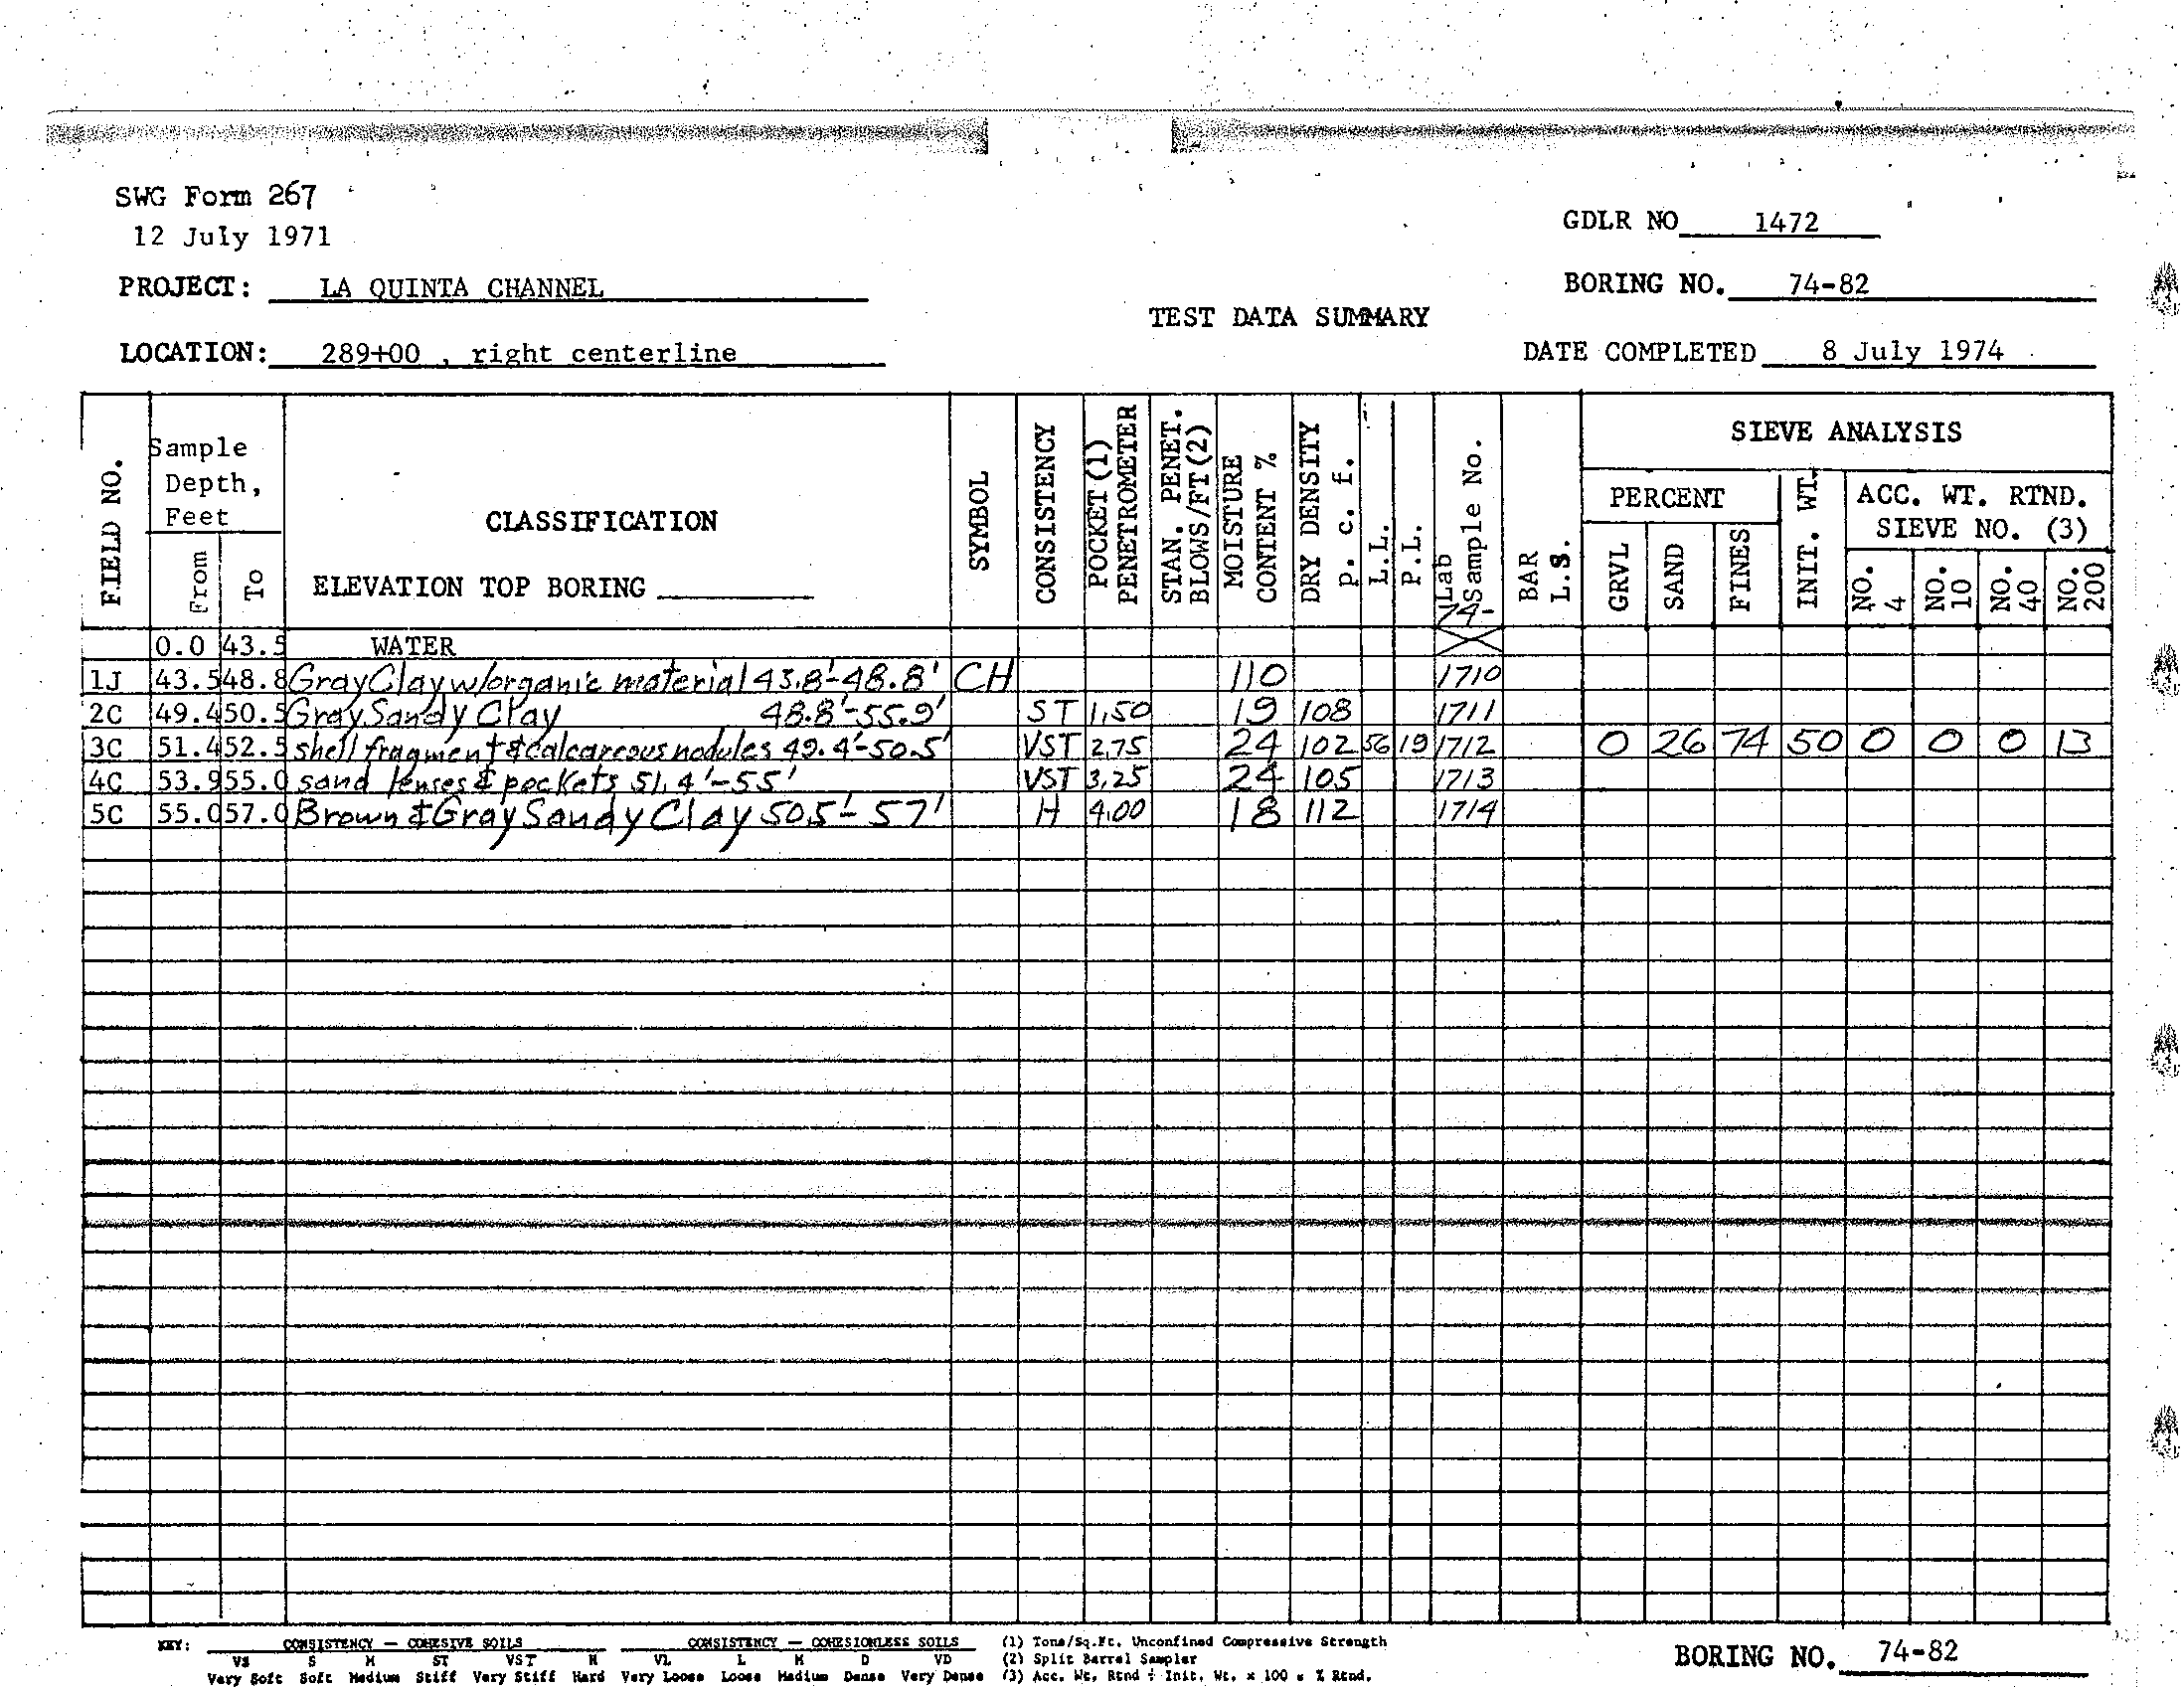 SWG Form 267
12 July 1971
GDLR NO 1472
PROJECT: LA QUINTA CHANNEL
BORING NO. 74-82
TEST DATA SUMMARY
LOCATION: 289+00 , right centerline
DATE COMPLETED 8 July 1974
FIELD NO.
Sample
Depth,
Feet
From
To
CLASSIFICATION
ELEVATION TOP BORING
SYMBOL
CONSISTENCY
POCKET (1)
PENETROMETER
STAN. PENET.
BLOWS/FT (2)
MOISTURE
CONTENT %
DRY DENSITY
p. c. f.
L.L.
P.L.
Lab
Sample No.
74-
BAR
L.S.
SIEVE ANALYSIS
PERCENT
GRVL
SAND
FINES
INIT. WT.
ACC. WT. RTND.
SIEVE NO. (3)
NO. 4
NO. 10
NO. 40
NO. 200
0.0 43.5 WATER
1J 43.5 48.8 Gray Clay w/organic material 43.8'-48.8' CH 110 1710
2C 49.4 50.5 Gray Sandy Clay 48.8'-55.9' ST 1.50 19 108 1711
3C 51.4 52.5 shell fragment & calcareous nodules 49.4'-50.5' VST 2.75 24 102 56 19 1712 0 26 74 50 0 0 0 13
4C 53.9 55.0 sand lenses & pockets 51.4'-55' VST 3.25 24 105 1713
5C 55.0 57.0 Brown & Gray Sandy Clay 50.5'-57' H 4.00 18 112 1714
KEY: CONSISTENCY — COHESIVE SOILS CONSISTENCY — COHESIONLESS SOILS (1) Tons/Sq.Ft. Unconfined Compressive Strength
VS S M ST VST H VL L M D VD (2) Split Barrel Sampler
Very Soft Soft Medium Stiff Very Stiff Hard Very Loose Loose Medium Dense Very Dense (3) Acc. Wt. Rtnd ÷ Init. Wt. x 100 = % Rtnd.
BORING NO. 74-82